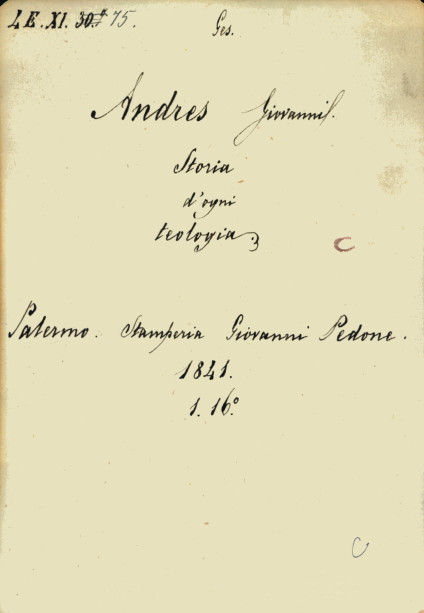 LE.XI.30.a 75. Ges.
Andres Giovanni.
Storia
d'ogni
teologia.
C
Palermo. Stamperia Giovanni Pedone.
1841.
1. 16.º
C